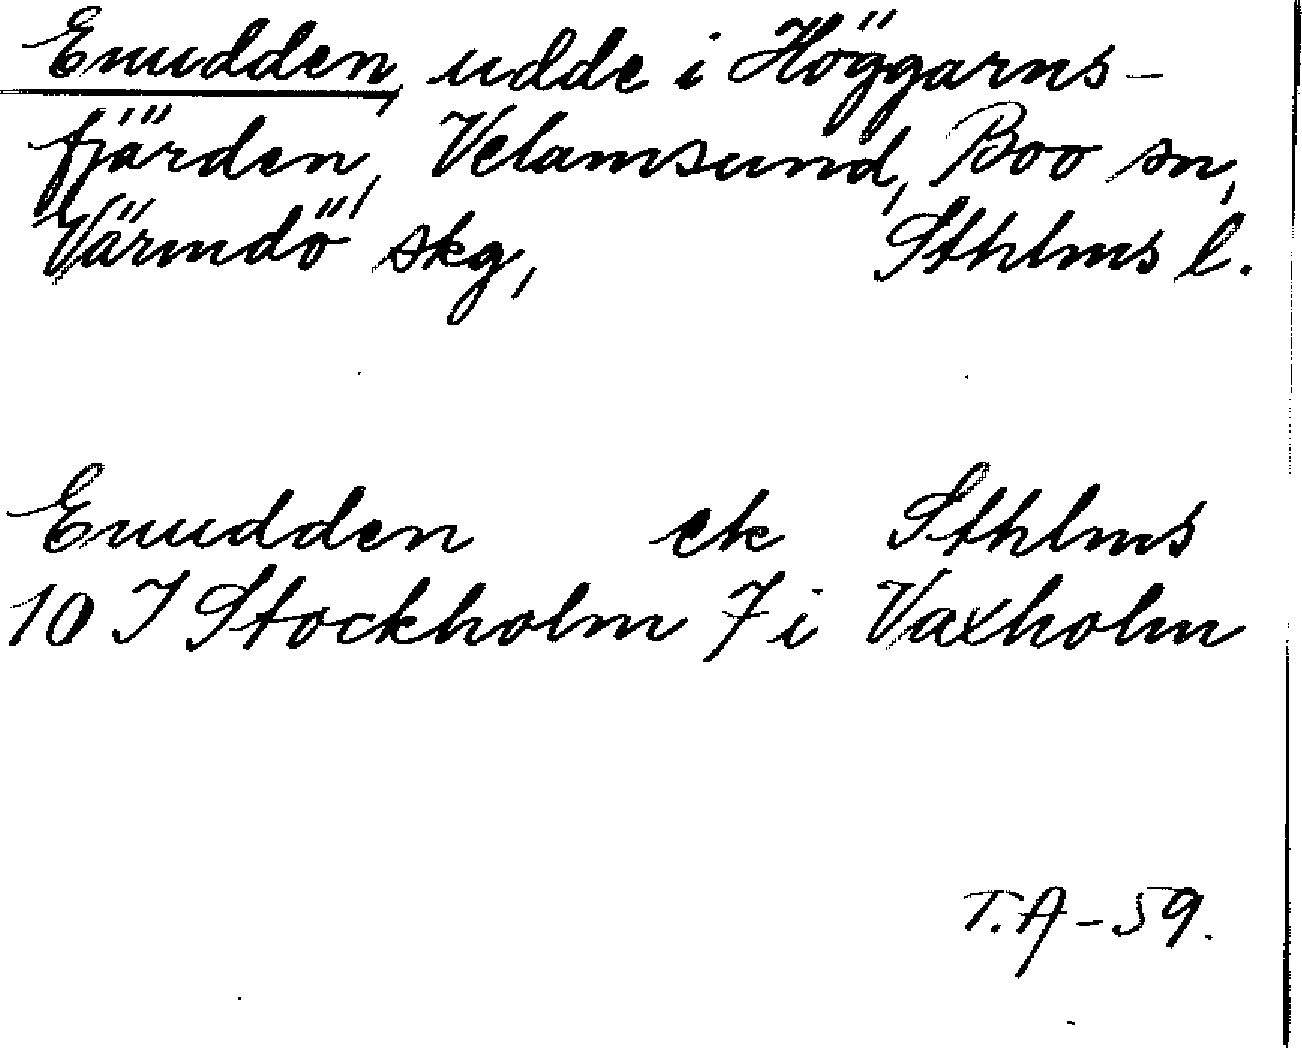 Enudden, udde i Höggarns-
fjärden, Velamsund, Boo sn,
Värmdö skg, Sthlms l.
Enudden ek Sthlms
10 I Stockholm 7 i Vaxholm
T.A - 59.